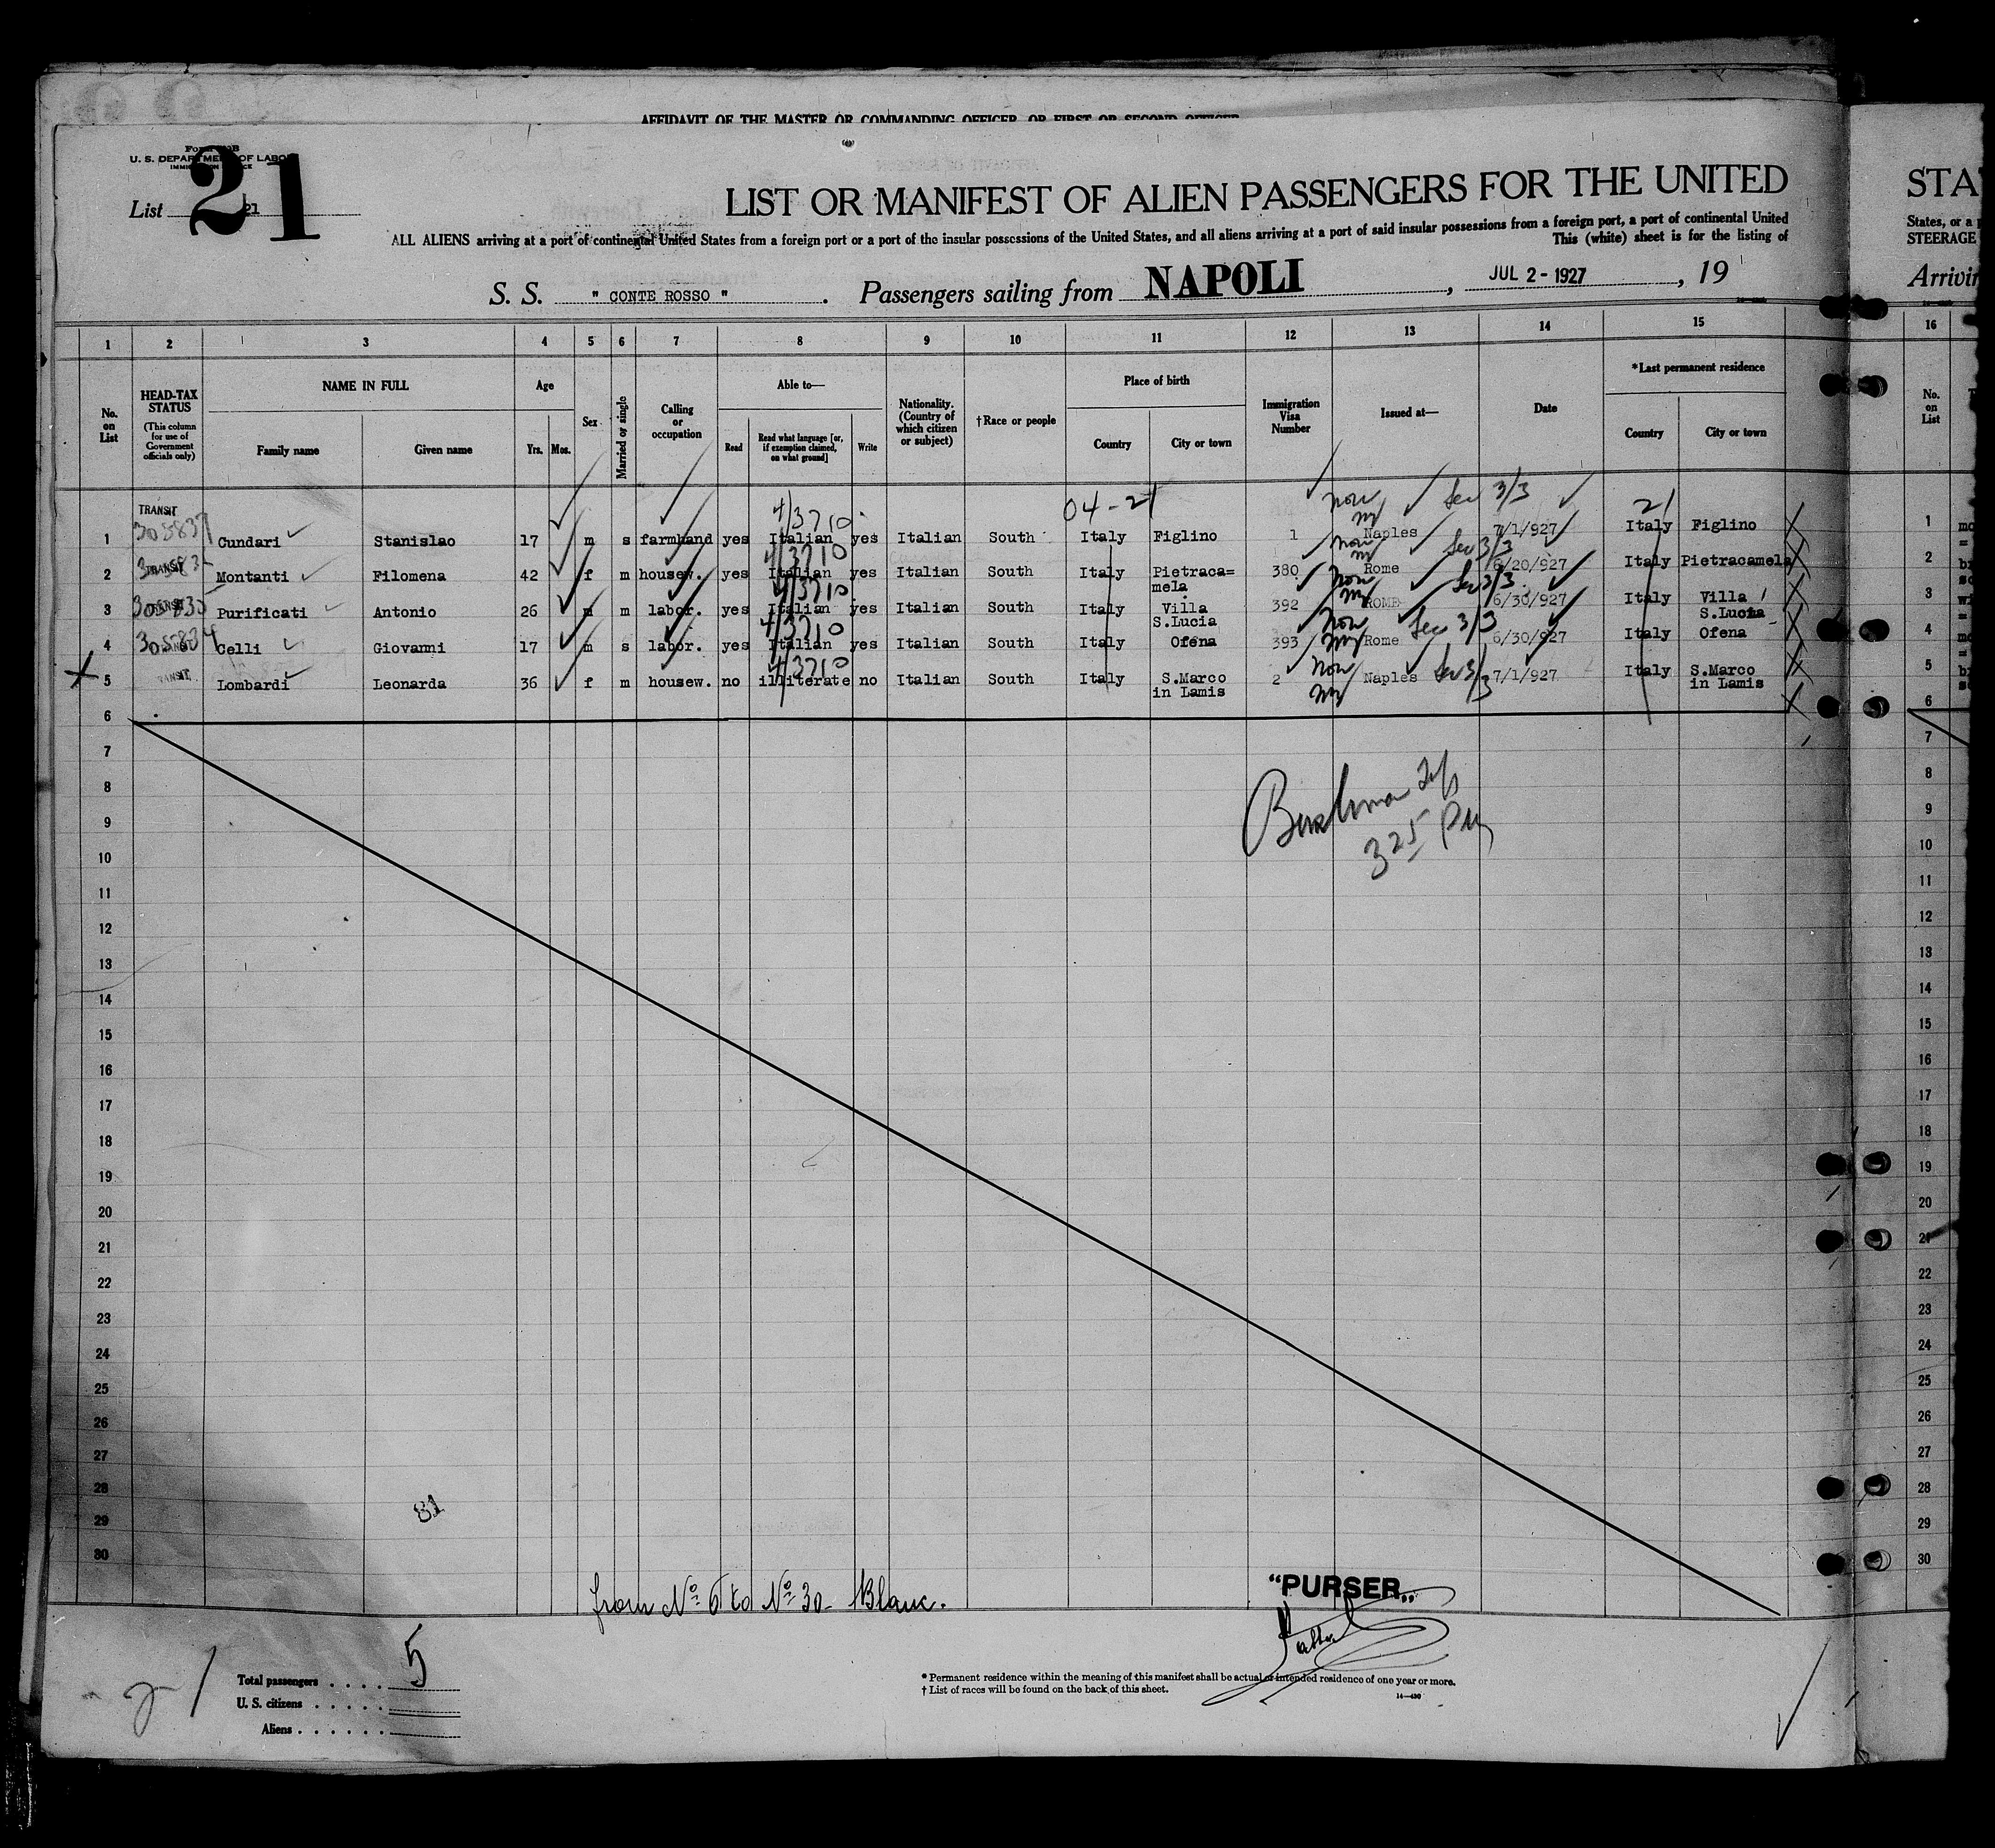 AFFIDAVIT OF THE MASTER OR COMMANDING OFFICER, OR FIRST OR SECOND OFFICER
U. S. DEPARTMENT OF LABOR
21
List 21
LIST OR MANIFEST OF ALIEN PASSENGERS FOR THE UNITED
STA
ALL ALIENS arriving at a port of continental United States from a foreign port or a port of the insular possessions of the United States, and all aliens arriving at a port of said insular possessions from a foreign port, a port of continental United
States, or a
This (white) sheet is for the listing of
STEERAGE
S. S. " CONTE ROSSO " . Passengers sailing from NAPOLI , JUL 2 - 1927 , 19
Arrivin
1 2 3 4 5 6 7 8 9 10 11 12 13 14 15 16
No. on List
HEAD-TAX STATUS
(This column for use of Government officials only)
NAME IN FULL
Family name Given name
Age
Yrs. Mos.
Sex
Married or single
Calling or occupation
Able to—
Read
Read what language [or, if exemption claimed, on what ground]
Write
Nationality. (Country of which citizen or subject)
†Race or people
Place of birth
Country City or town
Immigration Visa Number
Issued at—
Date
*Last permanent residence
Country City or town
No. on List
04-21
21
1 TRANSIT 305837 Cundari Stanislao 17 m s farmhand yes Italian 4/3710 yes Italian South Italy Figlino 1 non Naples Sec 3/3 7/1/927 Italy Figlino 1
2 TRANSIT Montanti Filomena 42 f m housew. yes Italian 4/3710 yes Italian South Italy Pietraca= mela 380 non Rome Sec 3/3 6/20/927 Italy Pietracamela 2
3 Purificati Antonio 26 m m labor. yes Italian 4/3710 yes Italian South Italy Villa S.Lucia 392 non ROME Sec 3/3 6/30/927 Italy Villa S.Lucia 3
4 305834 Celli Giovanni 17 m s labor. yes Italian 4/3710 yes Italian South Italy Ofena 393 non Rome Sec 3/3 6/30/927 Italy Ofena 4
5 TRANSIT Lombardi Leonarda 36 f m housew. no illiterate 4/3710 no Italian South Italy S.Marco in Lamis 2 non Naples Sec 3/3 7/1/927 Italy S.Marco in Lamis 5
6 6
7 7
8 8
9 9
10 10
11 11
12 12
13 13
14 14
15 15
16 16
17 17
18 18
19 19
20 20
21 21
22 22
23 23
24 24
25 25
26 26
27 27
28 28
29 29
30 30
325 PM
81
from No 6 to No 30 - Blanc.
"PURSER„
Total passengers . . . . 5
U. S. citizens . . . . .
Aliens . . . . . .
* Permanent residence within the meaning of this manifest shall be actual or intended residence of one year or more.
† List of races will be found on the back of this sheet.
14—430